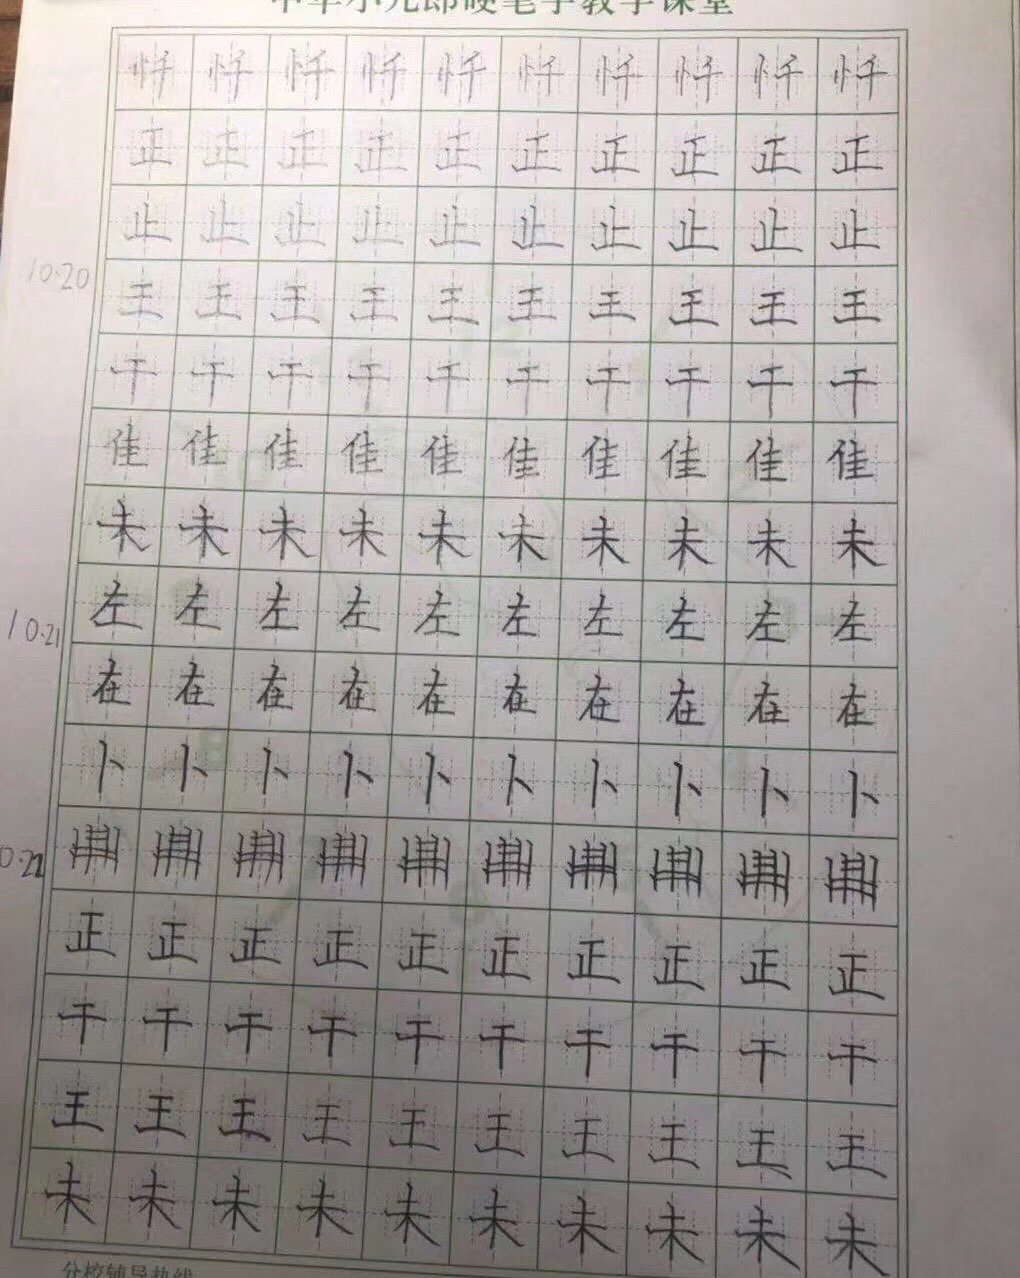 忏忏忏忏忏忏忏忏忏忏
正正正正正正正正正正
止止止止止止止止止止
10.20
王王王王王王王王王王
干干干干干干干干干干
佳佳佳佳佳佳佳佳佳佳
未未未未未未未未未未
左左左左左左左左左左
10.21
在在在在在在在在在在
卜卜卜卜卜卜卜卜卜卜
0.22
正正正正正正正正正正
干干干干干干干干干干
王王王王王王王王王王
未未未未未未未未未未
分校辅导热线